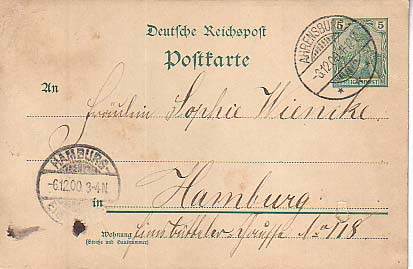 Deutsche Reichspost
Postkarte
5 5
AHRENSBURG
-6.12.00
An
Fräulein Sophie Wiencke
HAMBURG-
-6.12.00 3-4N.
in Hamburg
Wohnung
(Straße und Hausnummer)
Eimsbütteler Chaussee No 118